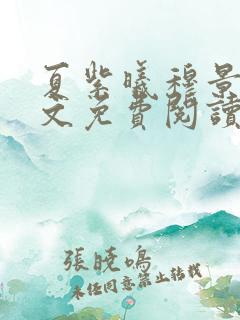 夏紫曦穆景
文免費閱讀
張曉鳴
未經同意禁止轉載